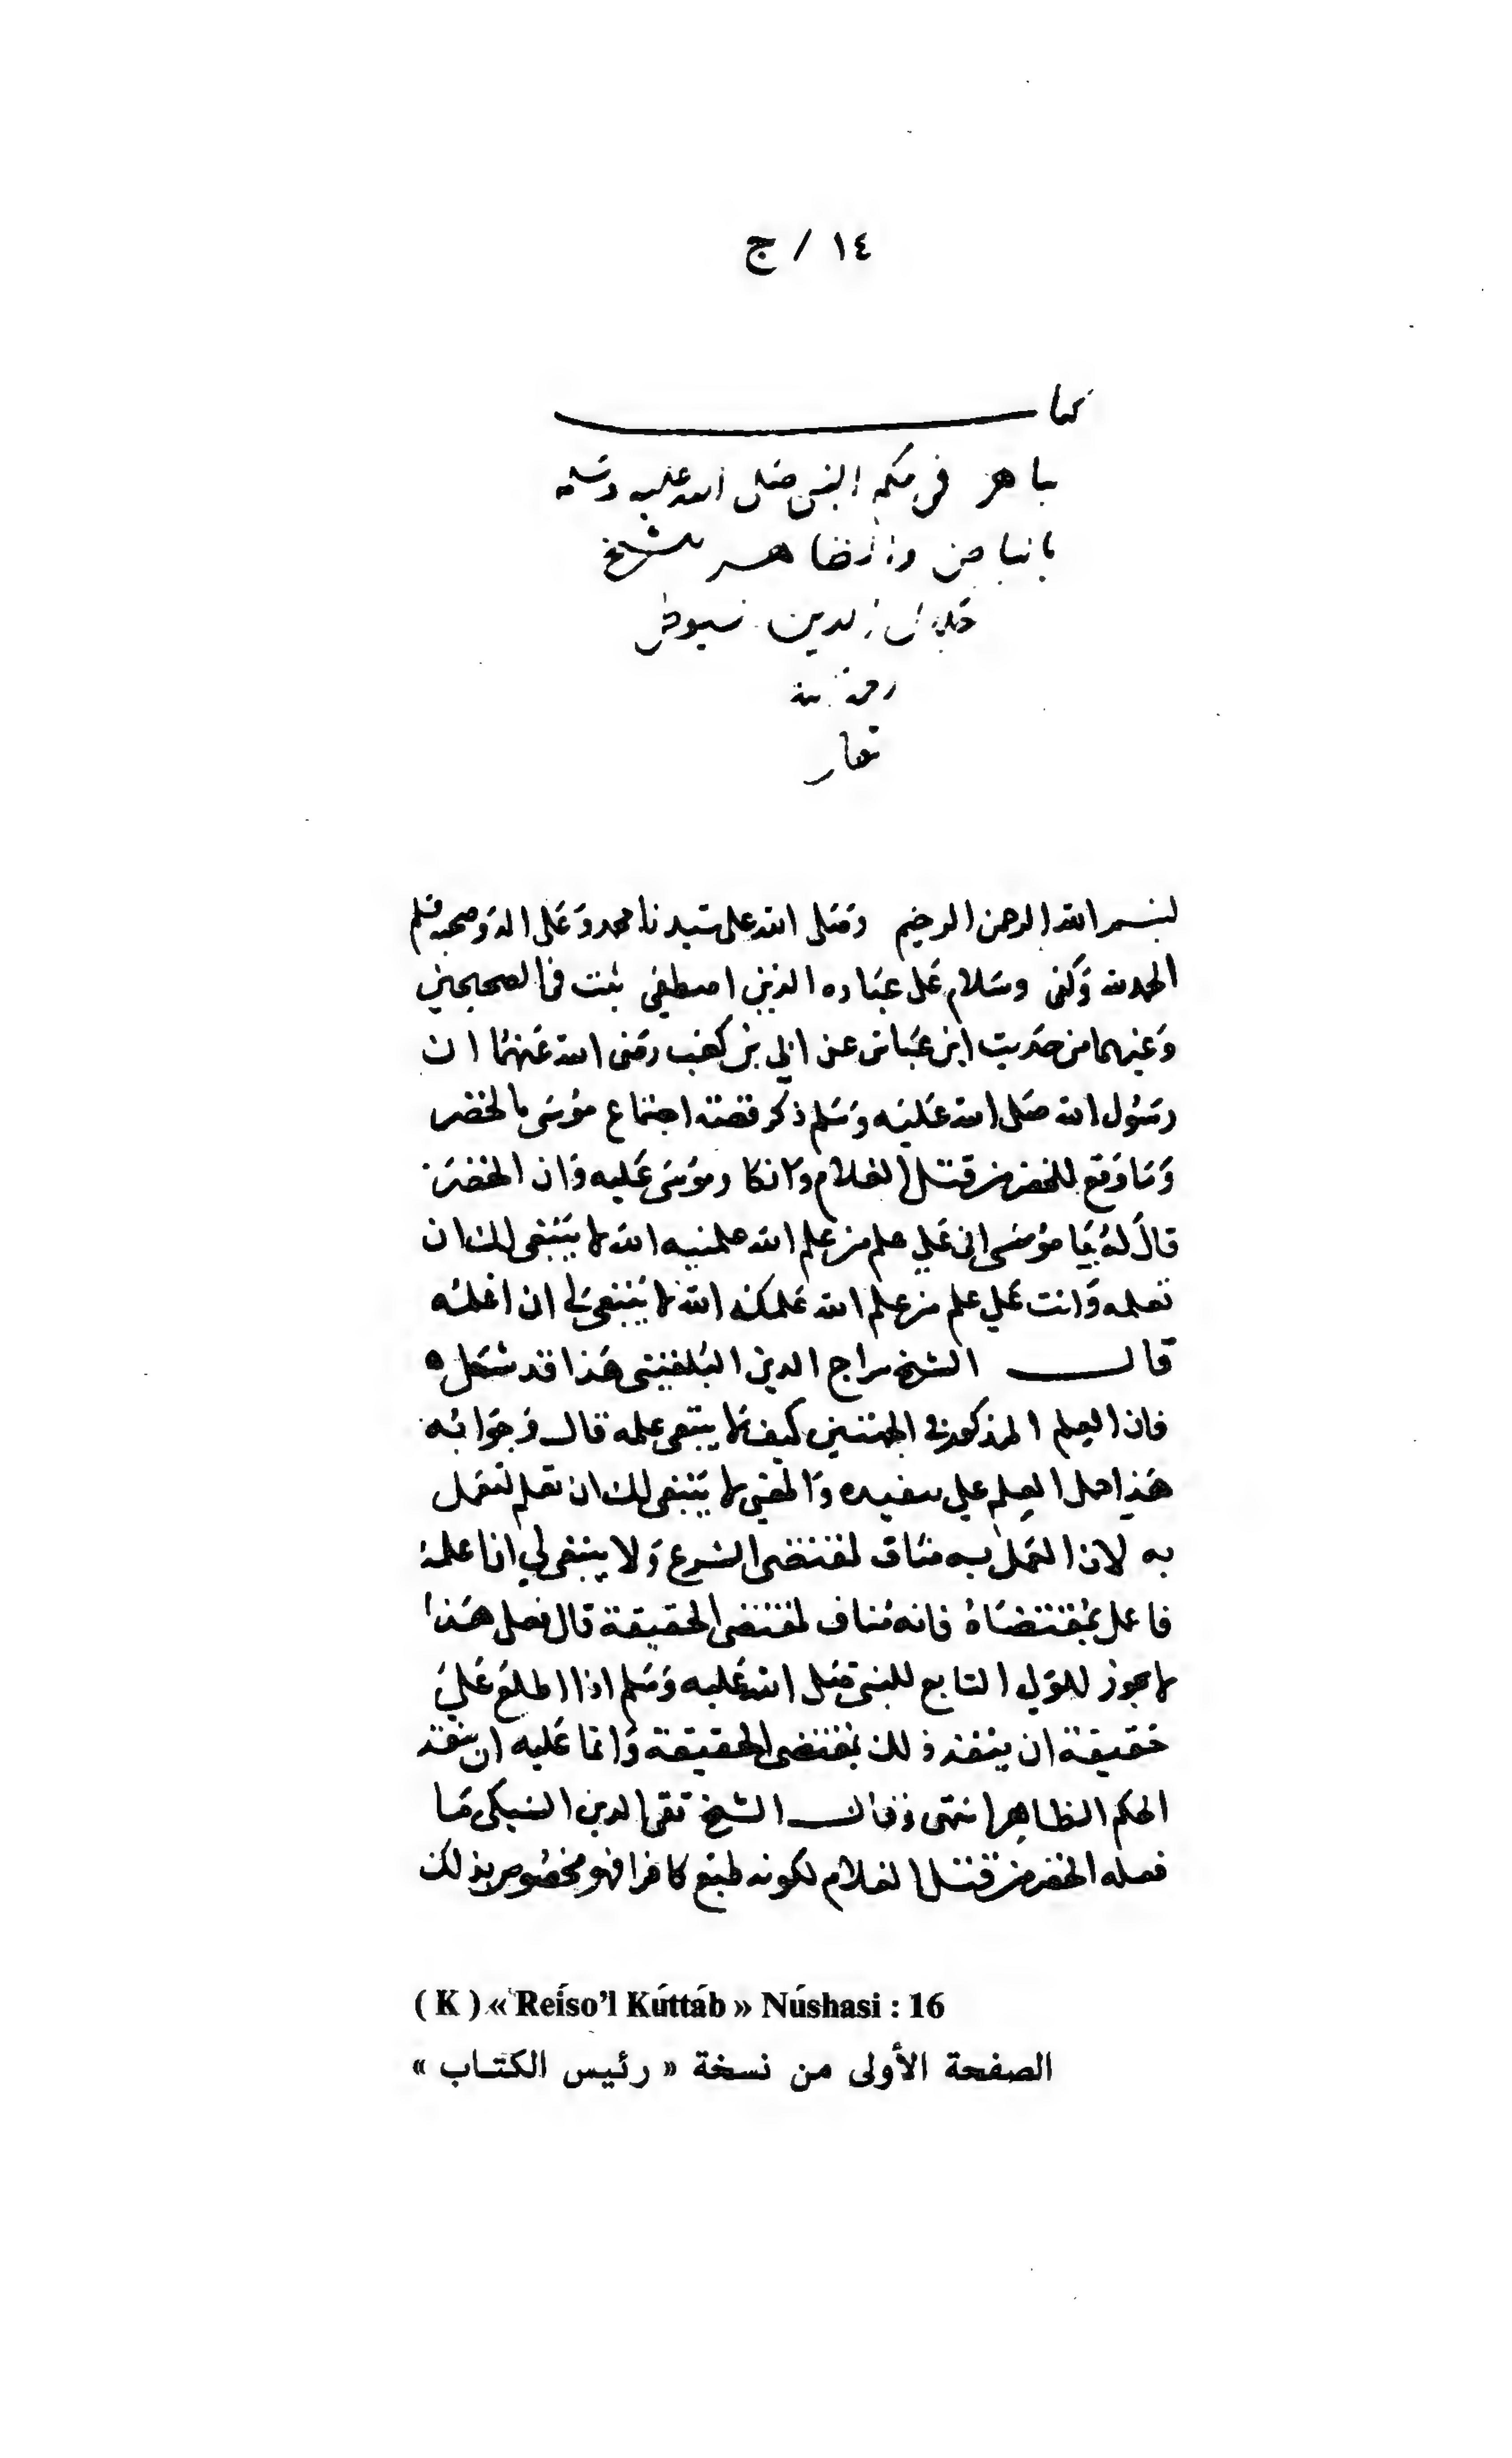 ١٤ / ج
كتاب
باهر في حكم النبي صلى الله عليه وسلم
بالباطن والظاهر للشيخ
جلال الدين سيوطي
رحمة الله
تعالى
بسم الله الرحمن الرحيم وصلى الله على سيدنا محمد وعلى اله وصحبه وسلم
الحمد لله وكفى وسلام على عباده الذين اصطفى ثبت في الصحيحين
وغيرهما من حديث ابن عباس عن ابي بن كعب رضي الله عنهما ان
رسول الله صلى الله عليه وسلم ذكر قصة اجتماع موسى بالخضر
وما وقع للخضر من قتل الغلام وانكار موسى عليه وان الخضر
قال له يا موسى اني علي علم من علم الله علمنيه الله لا ينبغي لك ان
تعلمه وانت علي علم من علم الله علمكه الله لا ينبغي لي ان اعلمه
قال الشيخ سراج الدين البلقيني هذا قد شكل
فان العلم المذكور في الجهتين كيف لا ينبغي علمه قال وجوابه
هذا حمل العلم علي تنفيذه والمعني لا ينبغي لك ان تعلم لتعمل
به لان العمل به مناف لمقتضى الشرع ولا ينبغي لي ان اعلمه
فاعمل بمقتضاه فانه مناف لمقتضى الحقيقة قال فعلى هذا
لا يجوز للولي التابع للنبي صلى الله عليه وسلم اذا اطلع على
حقيقة ان ينفذ ذلك بمقتضى الحقيقة وانما عليه ان ينفذ
الحكم الظاهر انتهى وقال الشيخ تقي الدين السبكي ما
فعله الخضر من قتل الغلام لكونه طبع كافرا فهو مخصوص بذلك
( K ) « Reíso'l Kúttáb » Núshasi : 16
الصفحة الأولى من نسخة « رئيس الكتاب »